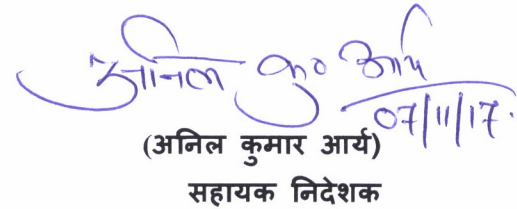 अनिल कु० आर्य
07/11/17.
(अनिल कुमार आर्य)
सहायक निदेशक